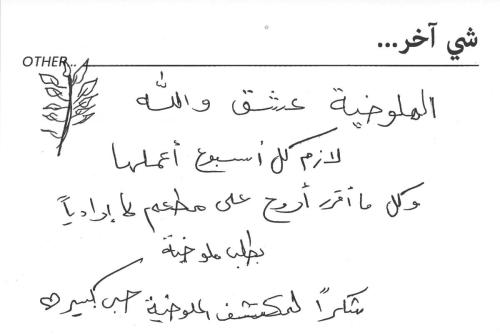 شي آخر...
OTHER...
الملوخية عشق والله
لازم كل أسبوع أعملها
وكل ما أقرر أروح على مطعم لا إرادياً
بطلب ملوخية
شكراً لمكتشف الملوخية حبي كبير ♡